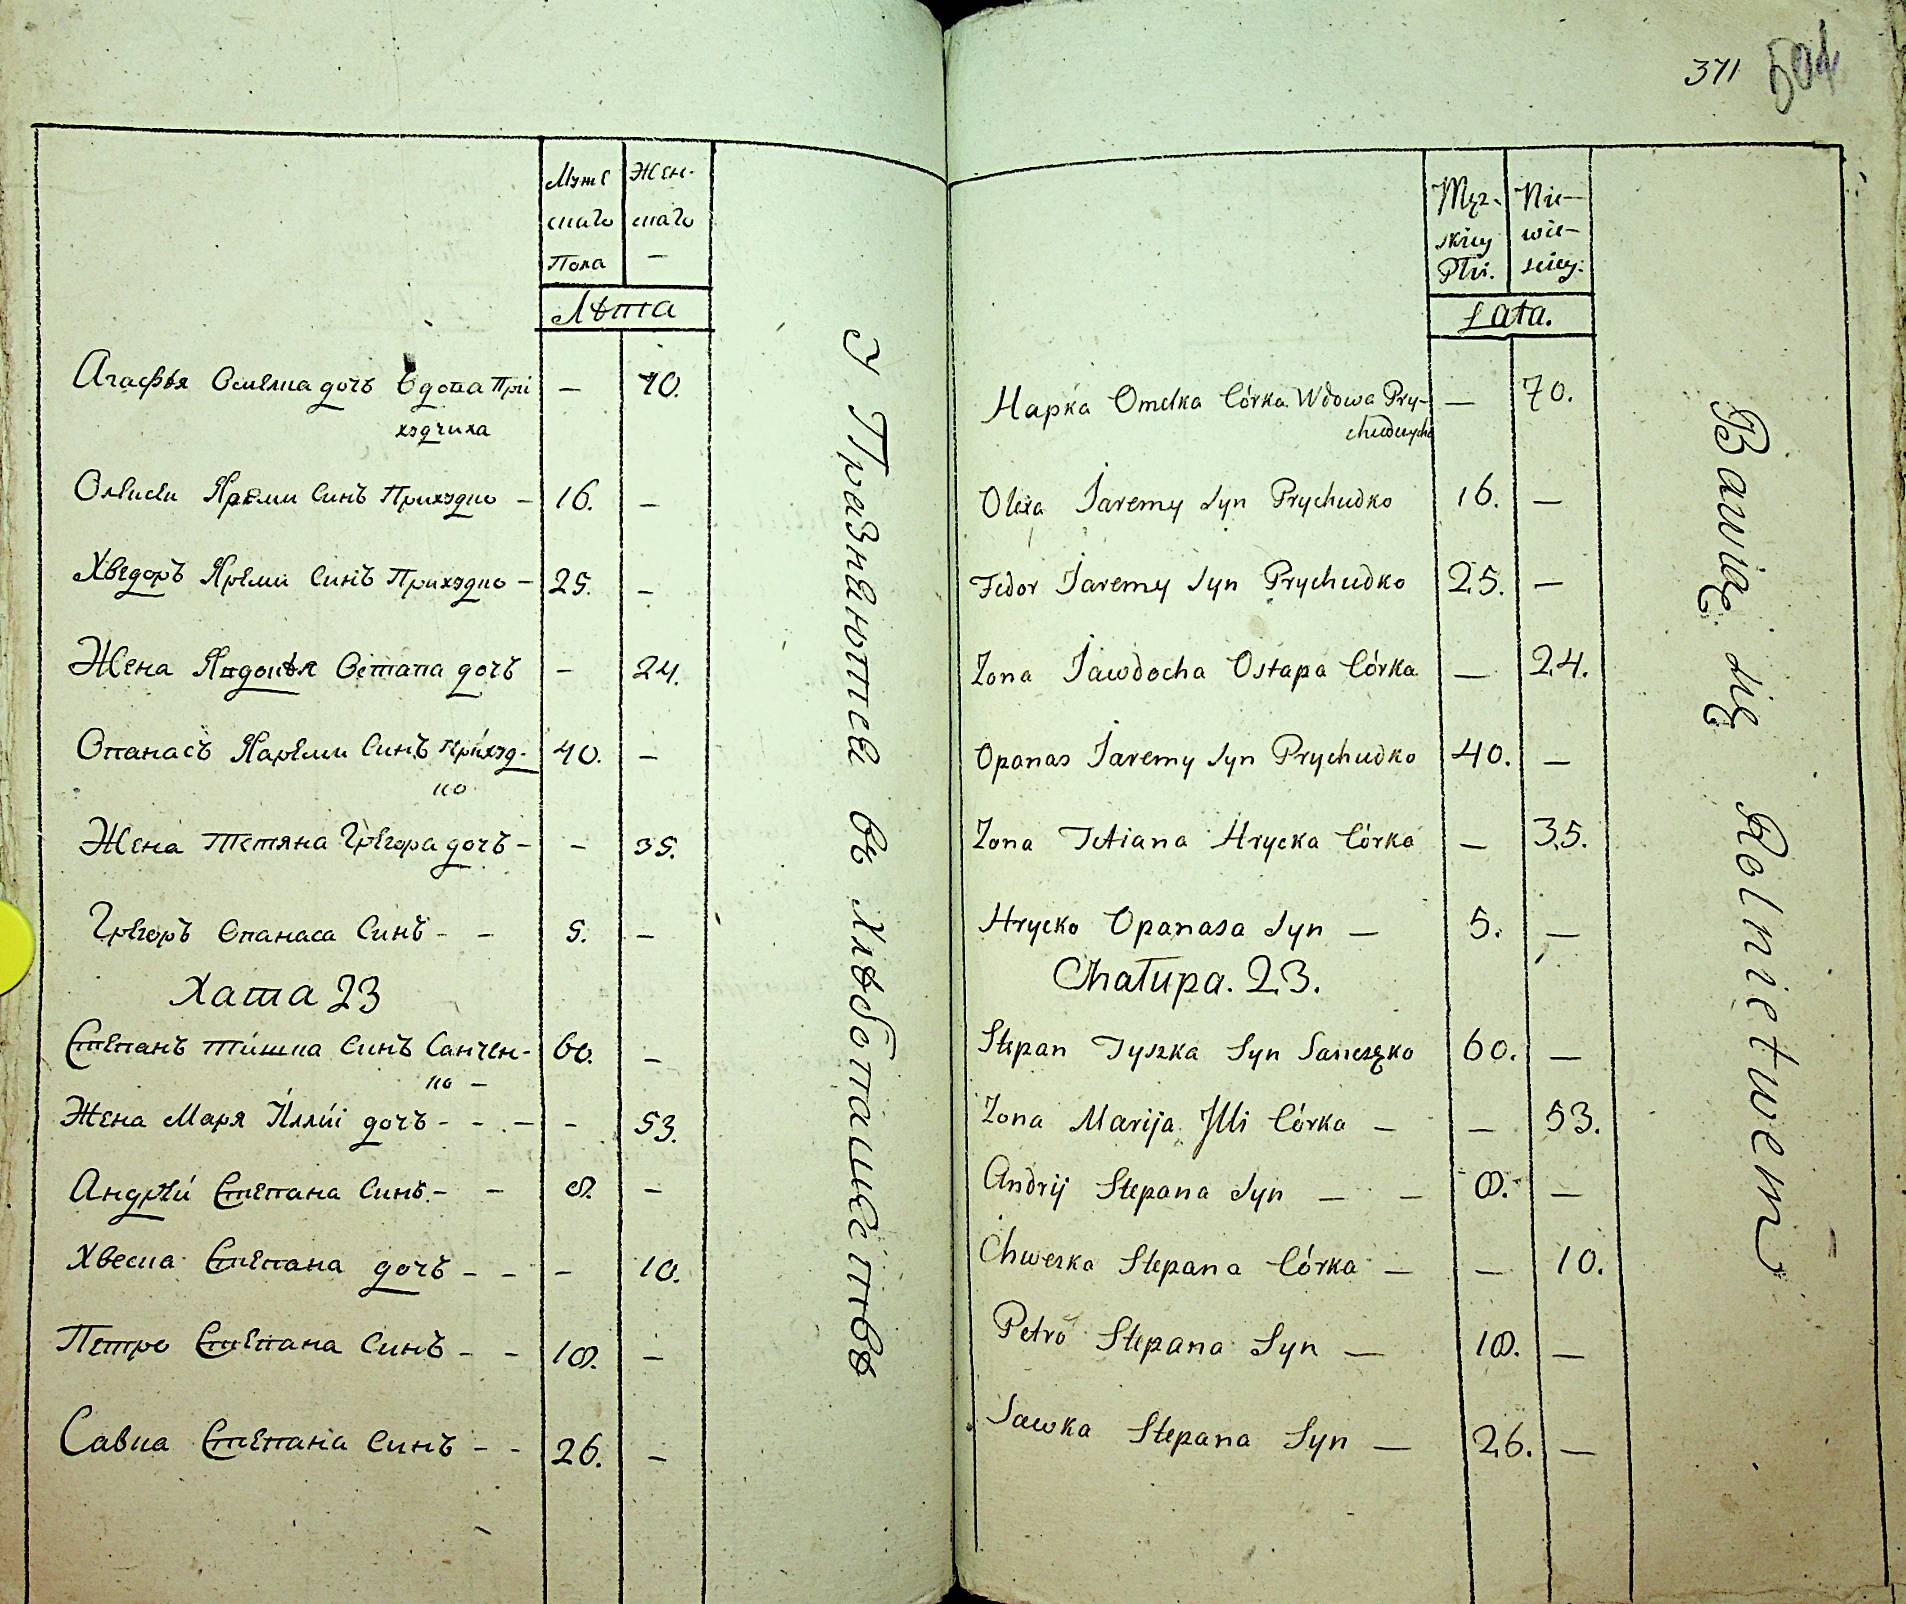 371 504
Муже Жен-
скаго скаго
Пола —
Лѣта
Агафья Омелка дочъ Вдова При — 70.
худчиха
Олекси Яреми Синъ Прихудко — 16. —
Хведоръ Яреми Синъ Прихудко — 25. —
Жена Явдокья Остапа дочъ — 24.
Опанасъ Яареми Синъ Прихуд- 40. —
ко
Жена Тетяна Григора дочъ — — 35.
Григоръ Опанаса Синъ - - 5. —
Хата 23
Степанъ Тишка Синъ Санчен- 60. —
ко —
Жена Маря Иллиі дочъ - - - — 53.
Андрѣй Степана Синъ. - - 8. —
Хвеска Степана дочъ - - — 10.
Петро Степана Синъ - - 18. —
Савка Степана Синъ - - 26. —
Упражняются въ Хлѣбопашествѣ
Męz- Nie-
skiey wie-
Płci. sciey.
Lata.
Hapka Omelka Córka Wdowa Pry- — 70.
chudczycha
Olexa Jaremy Syn Prychudko 16. —
Fedor Jaremy Syn Prychudko 25. —
Zona Jawdocha Ostapa Córka — 24.
Opanas Jaremy Syn Prychudko 40. —
Zona Tetiana Hrycka Córka — 35.
Hrycko Opanasa Syn — 5. —
Chałupa. 23.
Stepan Tyszka Syn Sanczęko 60. —
Zona Marija Jlli Córka — — 53.
Andrij Stepana Syn — — 8. —
Chweska Stepana Córka — — 10.
Petro Stepana Syn — 18. —
Sawka Stepana Syn — 26. —
Bawią się Rolnictwem